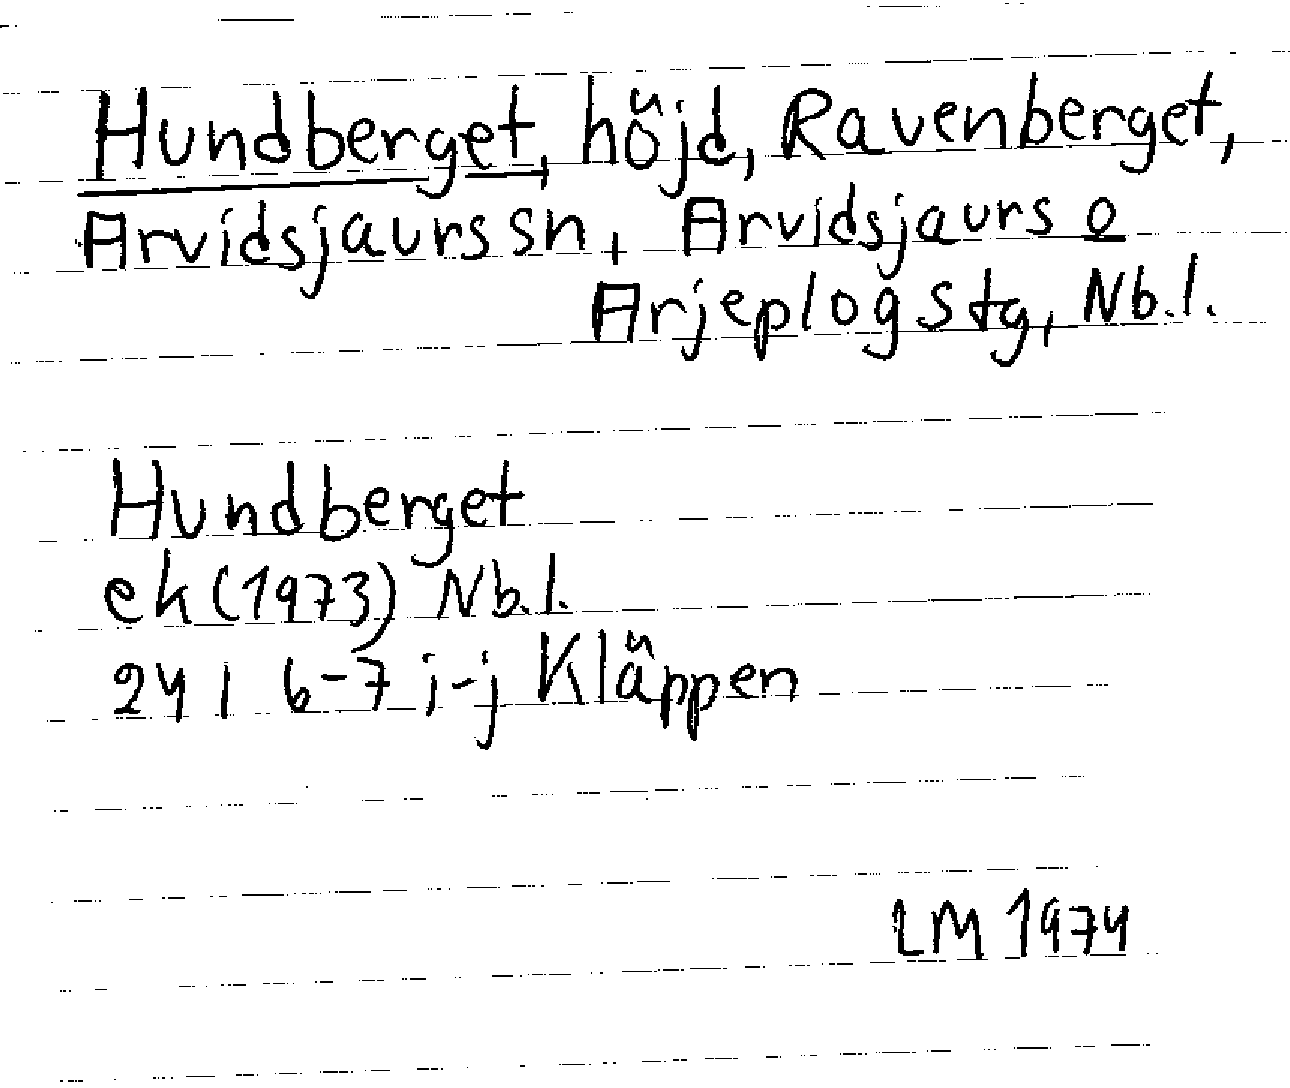 Hundberget, höjd, Ravenberget,
Arvidsjaurs sn, Arvidsjaurs o
Arjeplogs tg, Nb.l.
Hundberget
ek (1973) Nb.l.
24 I 6-7 i-j Kläppen
LM 1974